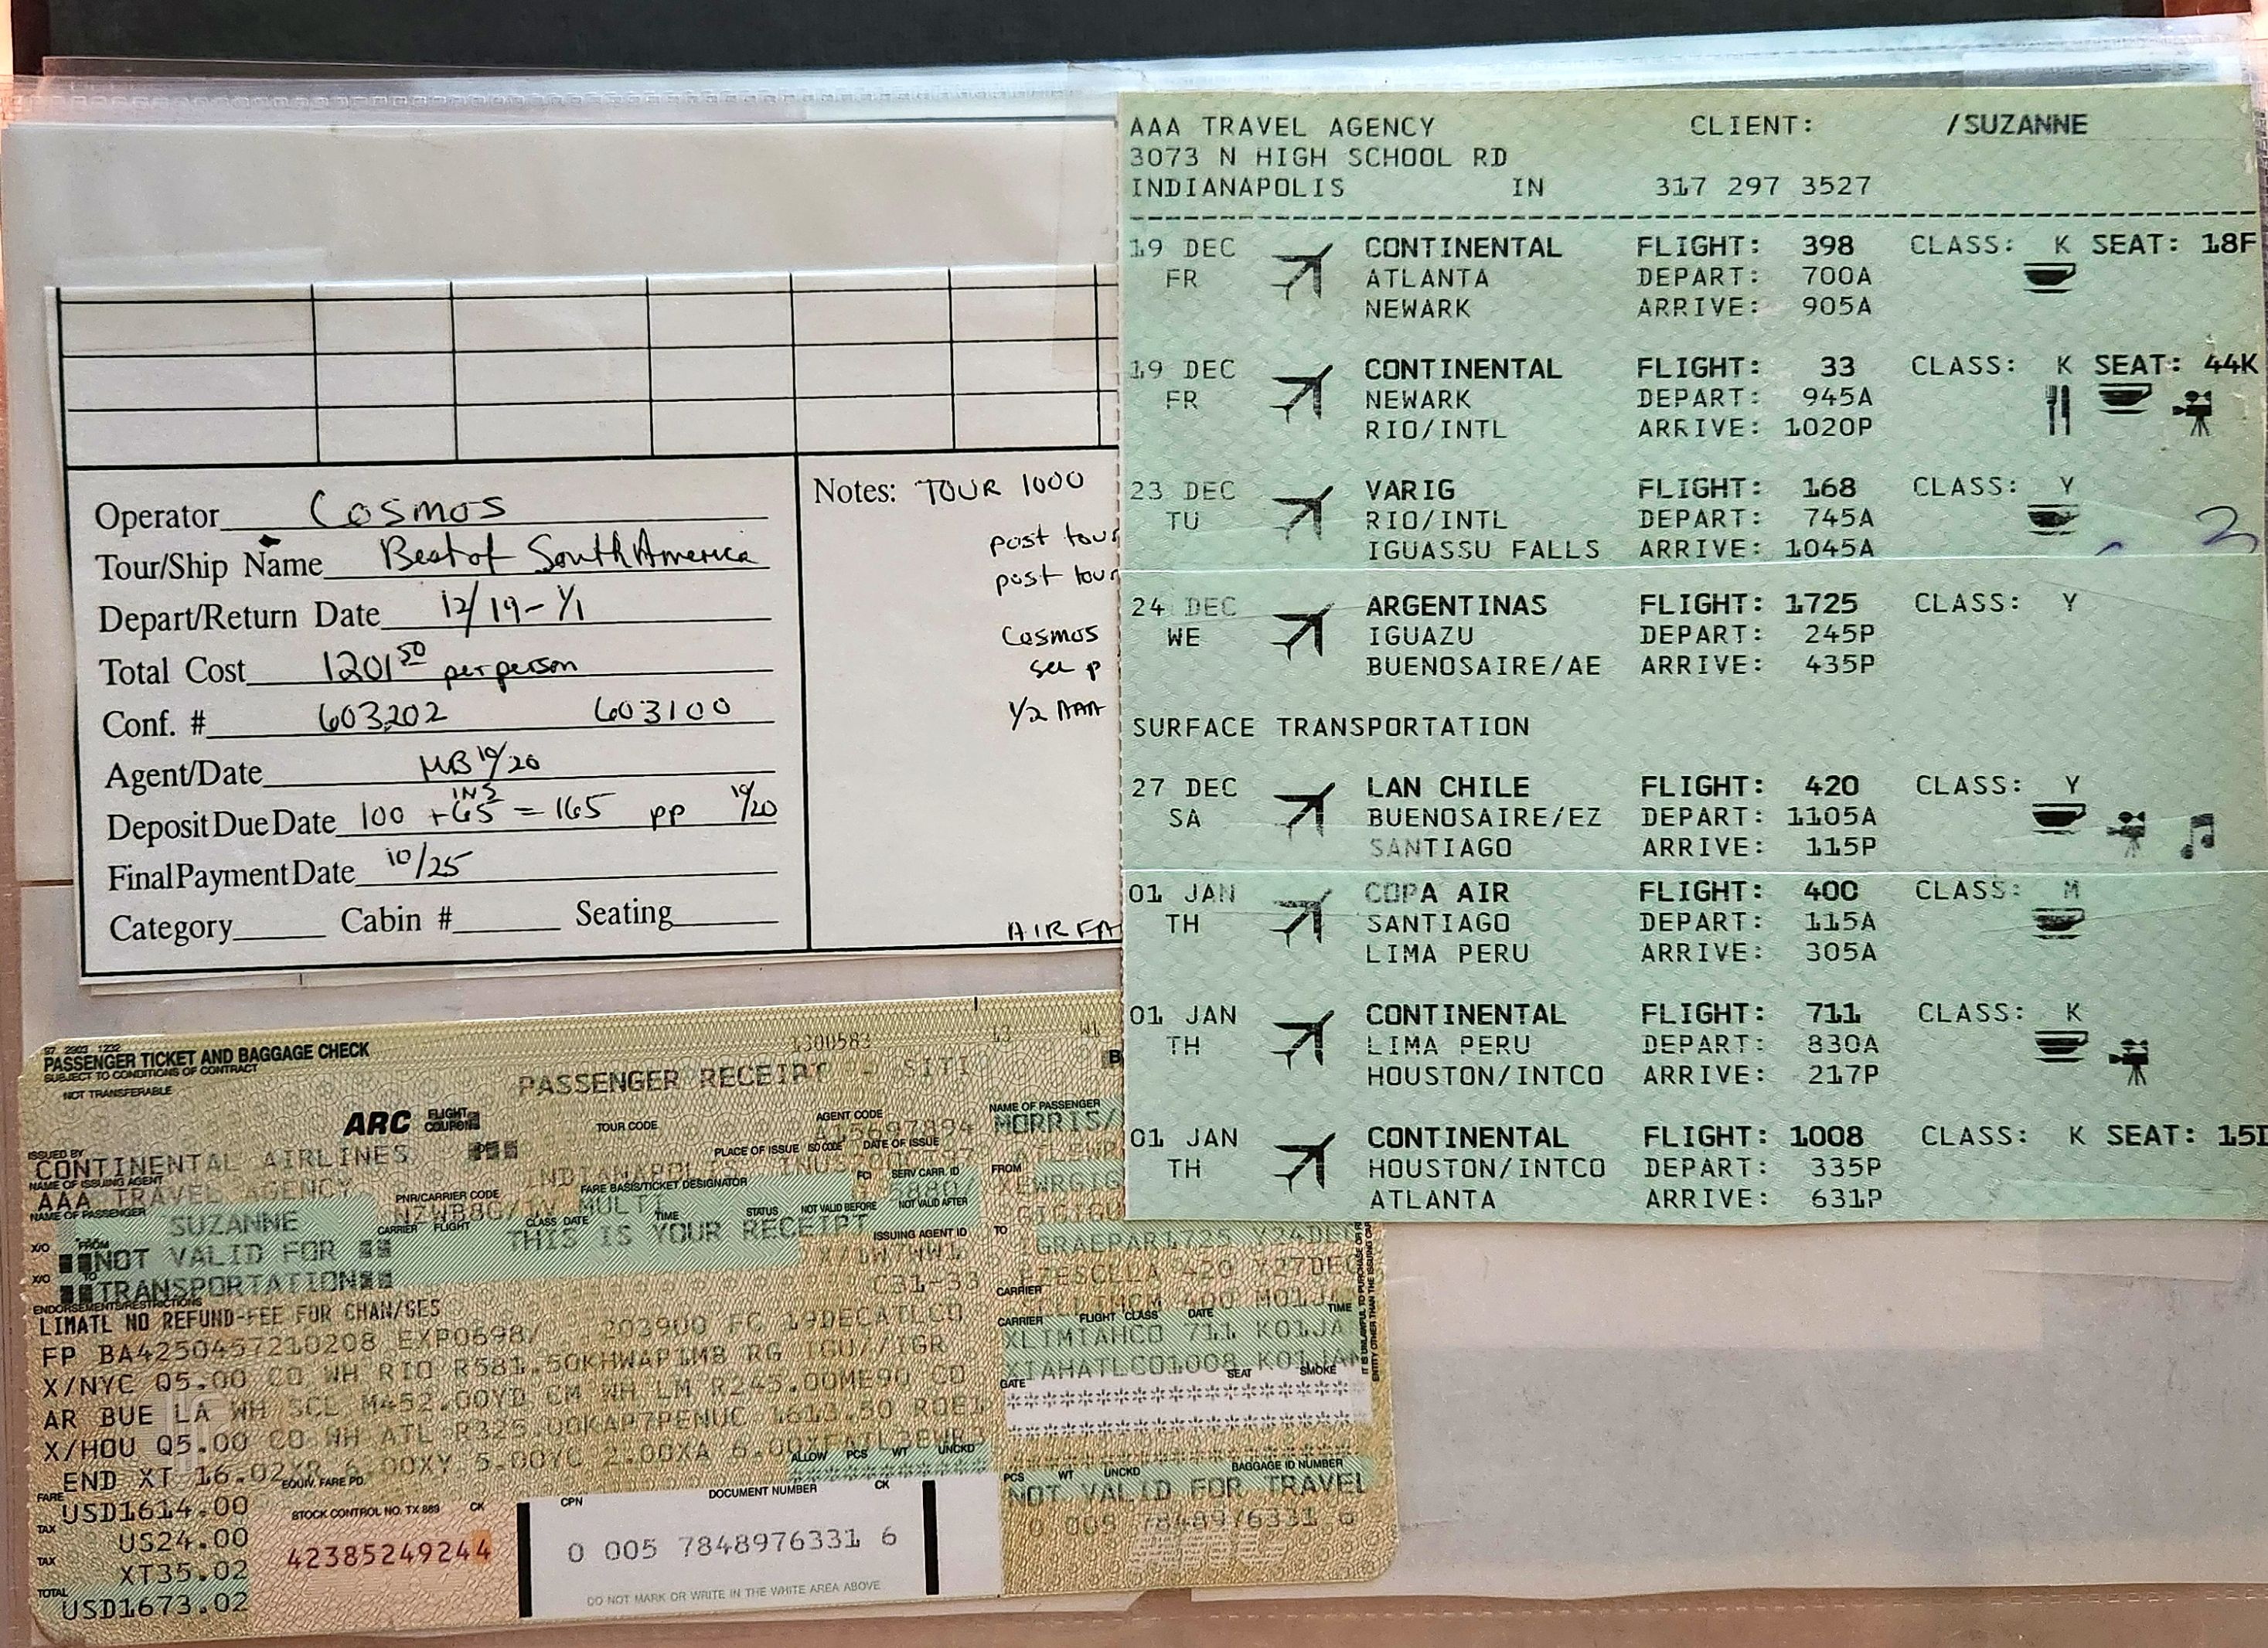 AAA TRAVEL AGENCY CLIENT: /SUZANNE
3073 N HIGH SCHOOL RD
INDIANAPOLIS IN 317 297 3527
19 DEC CONTINENTAL FLIGHT: 398 CLASS: K SEAT: 18F
FR ATLANTA DEPART: 700A
NEWARK ARRIVE: 905A
19 DEC CONTINENTAL FLIGHT: 33 CLASS: K SEAT: 44K
FR NEWARK DEPART: 945A
RIO/INTL ARRIVE: 1020P
23 DEC VARIG FLIGHT: 168 CLASS: Y
TU RIO/INTL DEPART: 745A
IGUASSU FALLS ARRIVE: 1045A
24 DEC ARGENTINAS FLIGHT: 1725 CLASS: Y
WE IGUAZU DEPART: 245P
BUENOSAIRE/AE ARRIVE: 435P
SURFACE TRANSPORTATION
27 DEC LAN CHILE FLIGHT: 420 CLASS: Y
SA BUENOSAIRE/EZ DEPART: 1105A
SANTIAGO ARRIVE: 115P
01 JAN COPA AIR FLIGHT: 400 CLASS: M
TH SANTIAGO DEPART: 115A
LIMA PERU ARRIVE: 305A
01 JAN CONTINENTAL FLIGHT: 711 CLASS: K
TH LIMA PERU DEPART: 830A
HOUSTON/INTCO ARRIVE: 217P
01 JAN CONTINENTAL FLIGHT: 1008 CLASS: K SEAT: 15D
TH HOUSTON/INTCO DEPART: 335P
ATLANTA ARRIVE: 631P
Operator Cosmos
Tour/Ship Name Best of South America
Depart/Return Date 12/19 - 1/1
Total Cost 1201 50 per person
Conf. # 603202 603100
Agent/Date MB 10/20
Deposit Due Date 100 + 65 INS = 165 pp 10/20
Final Payment Date 10/25
Category Cabin # Seating
Notes: TOUR 1000
post tour
post tour
Cosmos
see p
1/2 AAA
AIRFA
PASSENGER TICKET AND BAGGAGE CHECK
SUBJECT TO CONDITIONS OF CONTRACT
NOT TRANSFERABLE
PASSENGER RECEIPT - SITI
ARC FLIGHT COUPON
TOUR CODE AGENT CODE
NAME OF PASSENGER
MORRIS/
ISSUED BY PLACE OF ISSUE ISO CODE DATE OF ISSUE
CONTINENTAL AIRLINES
NAME OF ISSUING AGENT
AAA TRAVEL AGENCY
PNR/CARRIER CODE FARE BASIS/TICKET DESIGNATOR FCI SERV CARR. ID
INDIANAPOLIS
MULTI
NAME OF PASSENGER CARRIER FLIGHT CLASS DATE TIME STATUS NOT VALID BEFORE NOT VALID AFTER
SUZANNE
THIS IS YOUR RECEIPT
ISSUING AGENT ID
X/O FROM
NOT VALID FOR
X/O TO
TRANSPORTATION
ENDORSEMENTS/RESTRICTIONS
LIMATL NO REFUND-FEE FOR CHAN/GES
FP BA4250457210208 EXP0698/ 203900 FC 19DECATLCO
X/NYC Q5.00 CO WH RIO R581.50KHWAP1M8 RG IGU//IGR
AR BUE LA WH SCL M452.00YD CM WH LM R245.00ME90 CO
X/HOU Q5.00 CO WH ATL R325.00KAP7PENUC 1613.50 ROE1
END XT 16.02
5.00YC 2.00XA 6.00
EQUIV. FARE PD. ALLOW PCS WT UNCKD
FARE USD1614.00
TAX US24.00
TAX XT35.02
TOTAL USD1673.02
STOCK CONTROL NO. TX 889 CK
42385249244
CPN DOCUMENT NUMBER CK
0 005 7848976331 6
DO NOT MARK OR WRITE IN THE WHITE AREA ABOVE
FROM
TO
CARRIER
CARRIER FLIGHT CLASS DATE TIME
XLIMIAHCO 711 K01JA
XIAHATLCO1008 K01JAN
GATE SEAT SMOKE
PCS WT UNCKD BAGGAGE ID NUMBER
NOT VALID FOR TRAVEL
0 005 7848976331 6